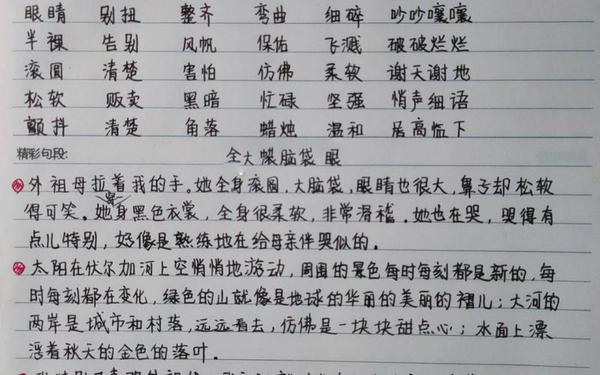 眼睛 别扭 整齐 弯曲 细碎 吵吵嚷嚷
半裸 告别 风帆 保佑 飞溅 破破烂烂
滚圆 清楚 害怕 仿佛 柔软 谢天谢地
松软 贩卖 黑暗 忙碌 坚强 悄声细语
颤抖 清楚 角落 蜡烛 温和 居高临下
精彩句段:
全大 脑袋 眼
外祖母拉着我的手。她全身滚圆,大脑袋,眼睛也很大,鼻子却松软
得可笑。她身黑色衣裳,全身很柔软,非常滑稽。她也在哭,哭得有
点儿特别,好像是熟练地在给母亲伴哭似的。
太阳在伏尔加河上空悄悄地游动,周围的景色每时每刻都是新的,每
时每刻都在变化,绿色的山就像是地球的华丽的美丽的褶儿;大河的
两岸是城市和村落,远远看去,仿佛是一块块甜点心;水面上漂
浮着秋天的金色的落叶。